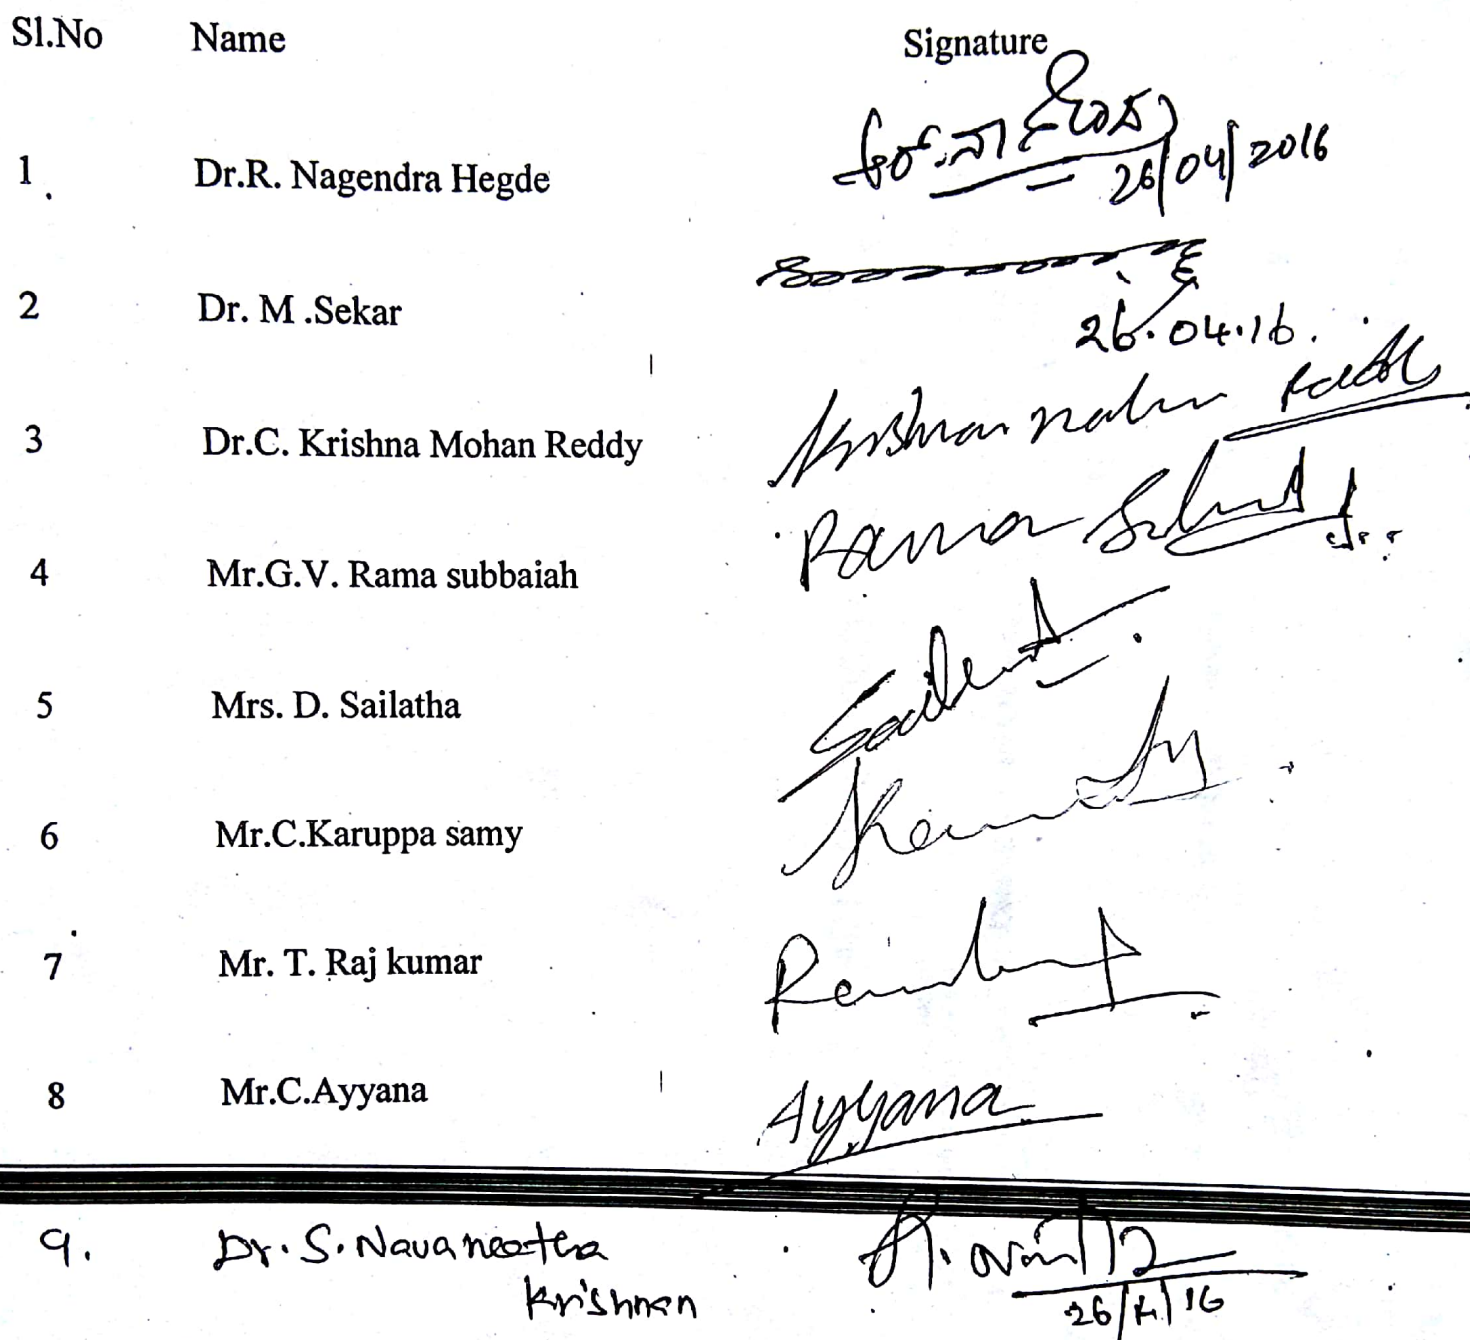 Sl.No Name Signature
1. Dr.R. Nagendra Hegde
26/04/2016
2 Dr. M .Sekar
26.04.16.
3 Dr.C. Krishna Mohan Reddy
4 Mr.G.V. Rama subbaiah Rama
5 Mrs. D. Sailatha
6 Mr.C.Karuppa samy
7 Mr. T. Raj kumar
8 Mr.C.Ayyana Ayyana
9. Dr. S. Navaneetha
Krishnan
26/4/16